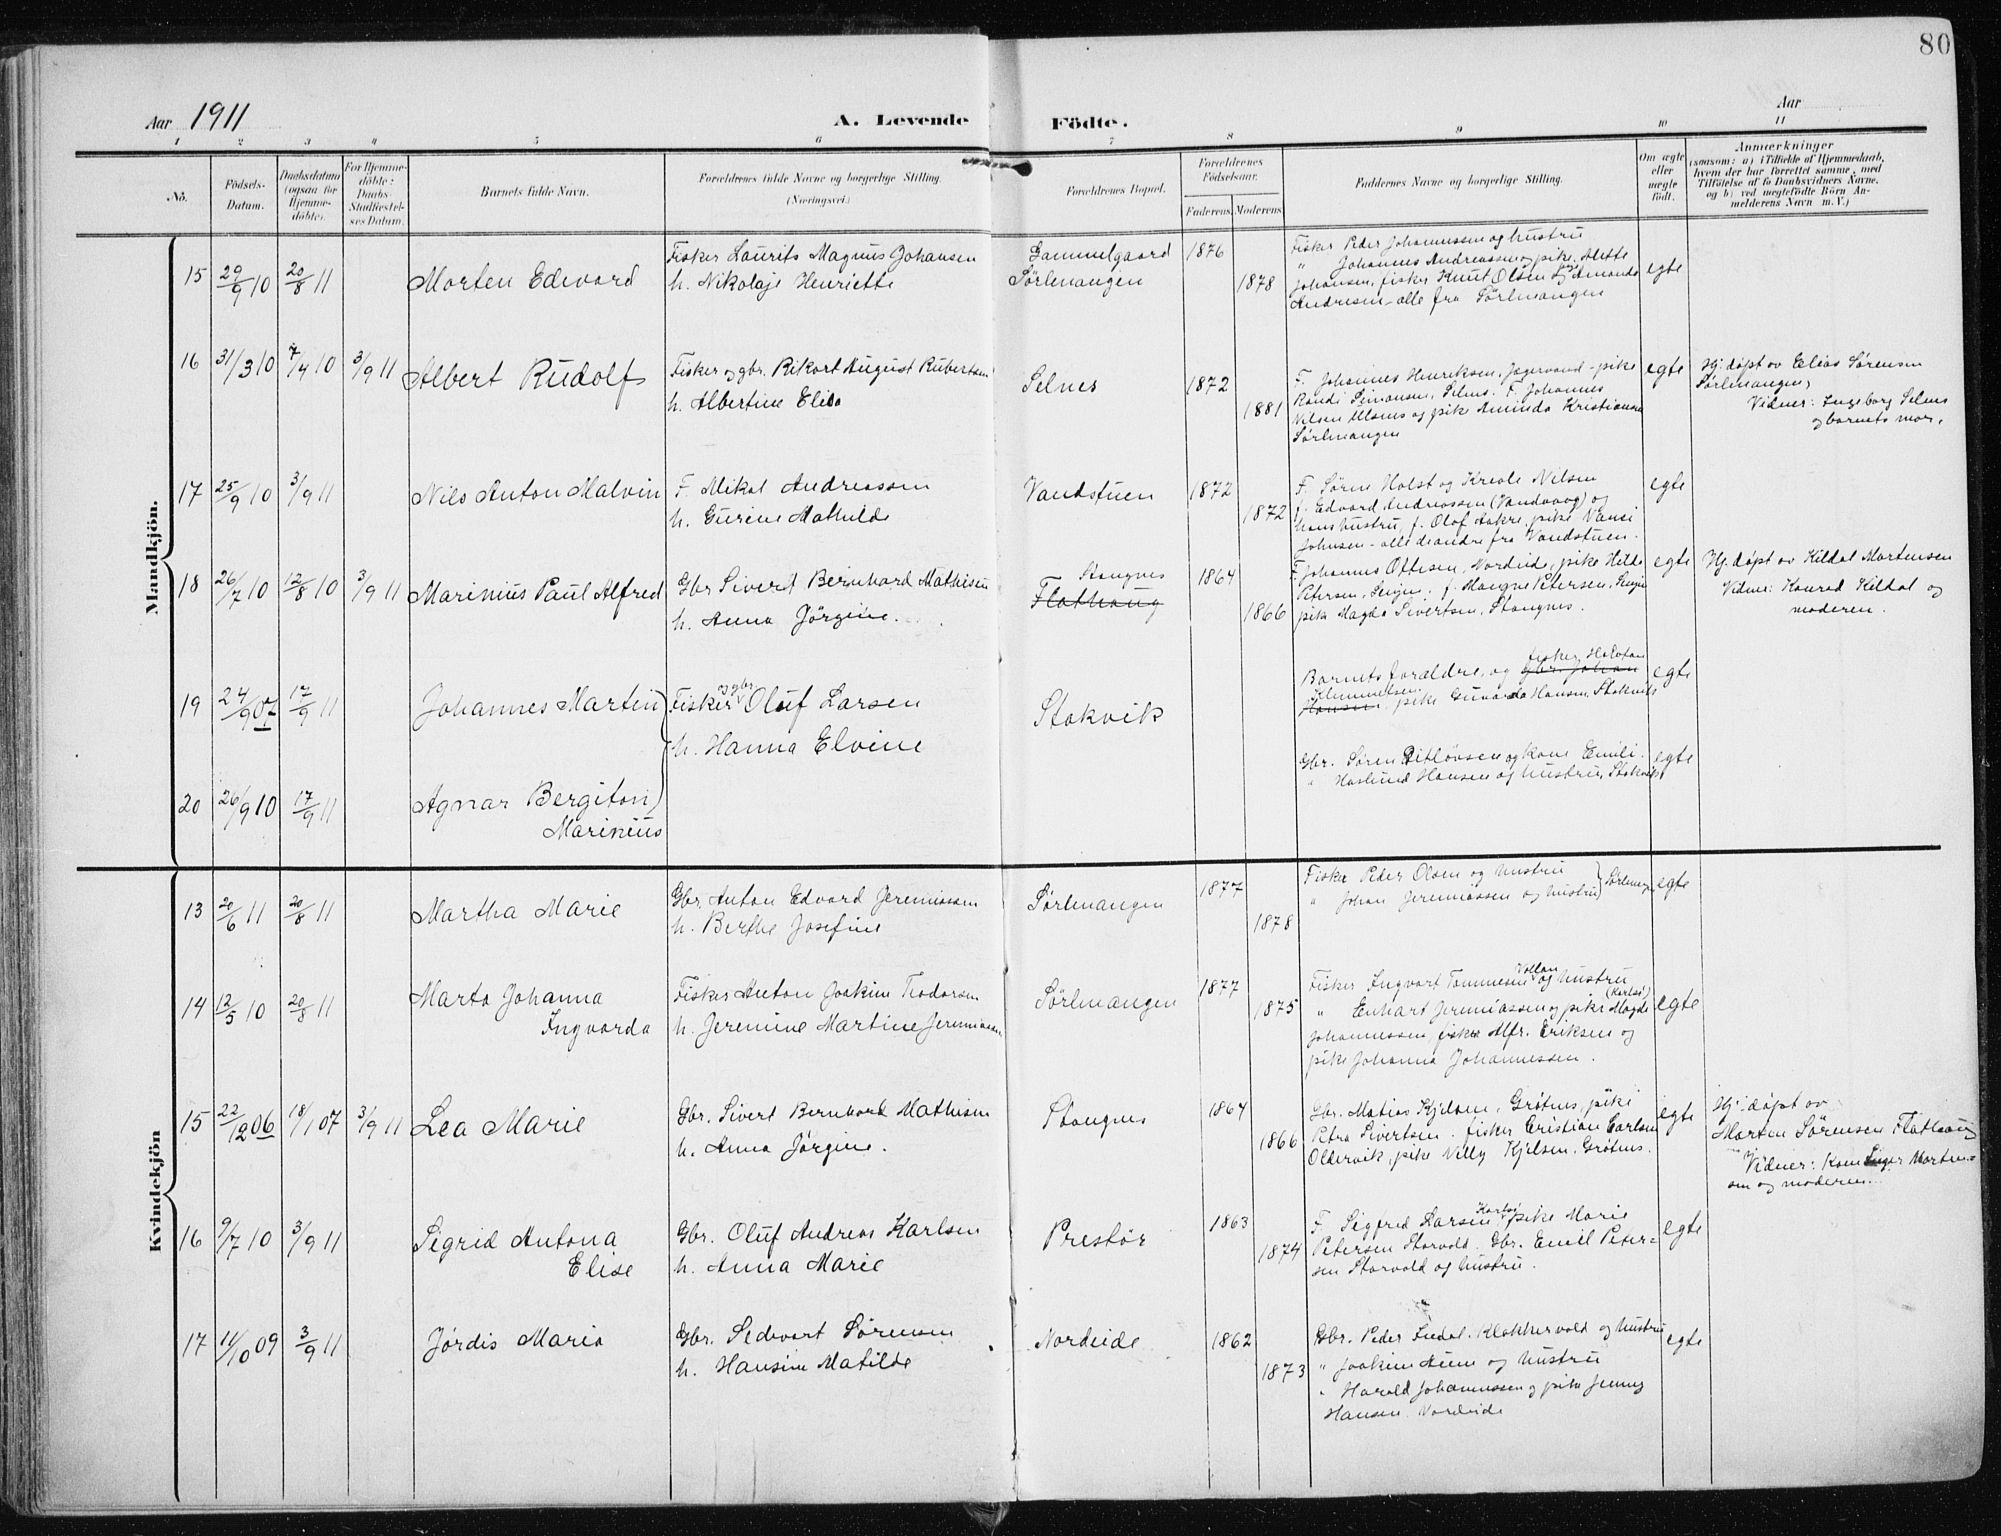 80
Aar 1911
A. Levende Födte.
Aar
1 2 3 4 5 6 7 8 9 10 11
No.
Födsels-Datum.
Daabsdatum (ogsaa for Hjemme-döbte).
For Hjemme-döbte: Daabs-Stadfæstel-ses Datum.
Barnets fulde Navn.
Forældrenes fulde Navne og borgerlige Stilling.
(Næringsvei.)
Forældrenes Bopæl.
Forældrenes Födselsaar.
Faderens. Moderens.
Faddernes Navne og borgerlige Stilling.
Om ægte eller uægte födt.
Anmærkninger
(saasom: a) i Tilfælde af Hjemmedaab,
hvem der har forrettet samme, med
Tilföielse af to Daabsvidners Navne,
og b) ved uægtefödte Börn An-
melderens Navn m. V.)
Mandkjön.
15 29/9 10 20/8 11 Morten Edvard
Fisker Laurits Magnus Johansen
h. Nikolaje Henriette
Gammelgaard
Sørlenangen
1876
1878
Fisker Peder Johannessen og hustru
" Johannes Andreassen og pike Alette
Johansen, fisker Knut Olsen og Amanda
Andresen - alle fra Sørlenangen
egte
16 31/3 10 7/4 10 3/9 11 Albert Rudolf
Fisker og gbr. Rikart August Rubertsen
h. Albertine Elisa
Selnes
1872
1881
F. Johannes Henriksen, Jægervand - pike
Randi Simonsen, Selnes. F. Johannes
Nilsen Ulsnes og pike Aminda Kristiansen
Sørlenangen
egte
Hj. døpt av Elias Sørensen
Sørlenangen,
Vidner: Ingeborg Selnes
og barnets mor.
17 25/9 10 3/9 11 Nils Anton Malvin
F. Mikal Andreassen
h. Gurine Mathilde
Vandstuen
1872
1872
F. Sørne Holst og Kreole Nilsen
f. Edvard Andreassen (Vandvaag) og
hans hustru, f. Olaf Aakre, pike Vansi
Johnsen - alle de andre fra Vandstuen.
egte
18 26/7 10 12/8 10 3/9 11 Marinius Paul Alfred
Gbr Sivert Bernhard Mathisen
h. Anna Jørgine.
Stangnes
Flathaug
1864
1866
F. Johannes Ottesen, Nordeide, pike Hilda
Petersen, Seign; f. Mangne Petersen, Seign
pik Magda Sivertsen, Stangnes.
egte
Hj. døpt av Kildal Mortensen
Vidner: Konrad Kildal og
moderen.
19 24/9 07 17/9 11 Johannes Martin
Fisker og gbr Oluf Larsen
h. Hanna Elvine
Stakvik
Barnets forældre, og gbr. Johan fisker Halvdan
Hansen Klemmetsen, pike Gunarda Hansen, Stakvik
egte
20 26/9 10 17/9 11 Agnar Bergiton
Marinius
Gbr. Søren Ditløvsen og kone Emili
" Haslund Hansen og hustru, Stakvik
egte
Kvindekjön
13 20/6 11 20/8 11 Martha Marie
Gbr. Anton Edvard Jeremiassen
h. Berthe Josefine
Sørlenangen
1877
1878
Fisker Peder Olsen og hustru
" Johan Jeremiassen og hustru } Sørlenangen
egte
14 12/5 10 20/8 11 Marta Johanna
Ingvarda
Fisker Anton Joakim Tvodorsen
h. Jeremine Martine Jeremiassen
Sørlenangen
1877
1875
Fisker Ingvart Tommesen Vollan og hustru
" Enhart Jeremiassen og pike Magda (Karlsø)
Johannessen, fisker Alfr. Eriksen og
pike Johanna Johannessen.
egte
15 22/12 06 18/1 07 3/9 11 Lea Marie
Gbr. Sivert Bernhard Mathisen
h. Anna Jørgine.
Stangnes
1864
1866
Gbr. Matias Kjelsen, Grøtnes, pike
Petra Sivertsen. fisker Cristian Carlsen
Oldervik, pike Villy Kjelsen, Grøtnes.
egte
Hj. døpt av
Morten Sørensen Flathaug
Vidner: Kone Inger Morten-
sen og moderen.
16 9/7 10 3/9 11 Sigrid Antona
Elise
Gbr. Oluf Andreas Karlsen
h. Anna Marie
Prestør
1863
1874
F. Sigfred Larsen Karlsø, pike Marie
Petersen Storvold. Gbr. Emil Peter-
sen Storvold og hustru.
egte
17 11/10 09 3/9 11 Jørdis Maria
Gbr. Sedevart Sørensen
h. Hansine Matilde
Nordeide
1862
1873
Gbr. Peder Indal. Klokkervold og hustru
" Joakim Aune og hustru
" Harald Johannessen og pike Jenny
Hansen. Nordeide
egte